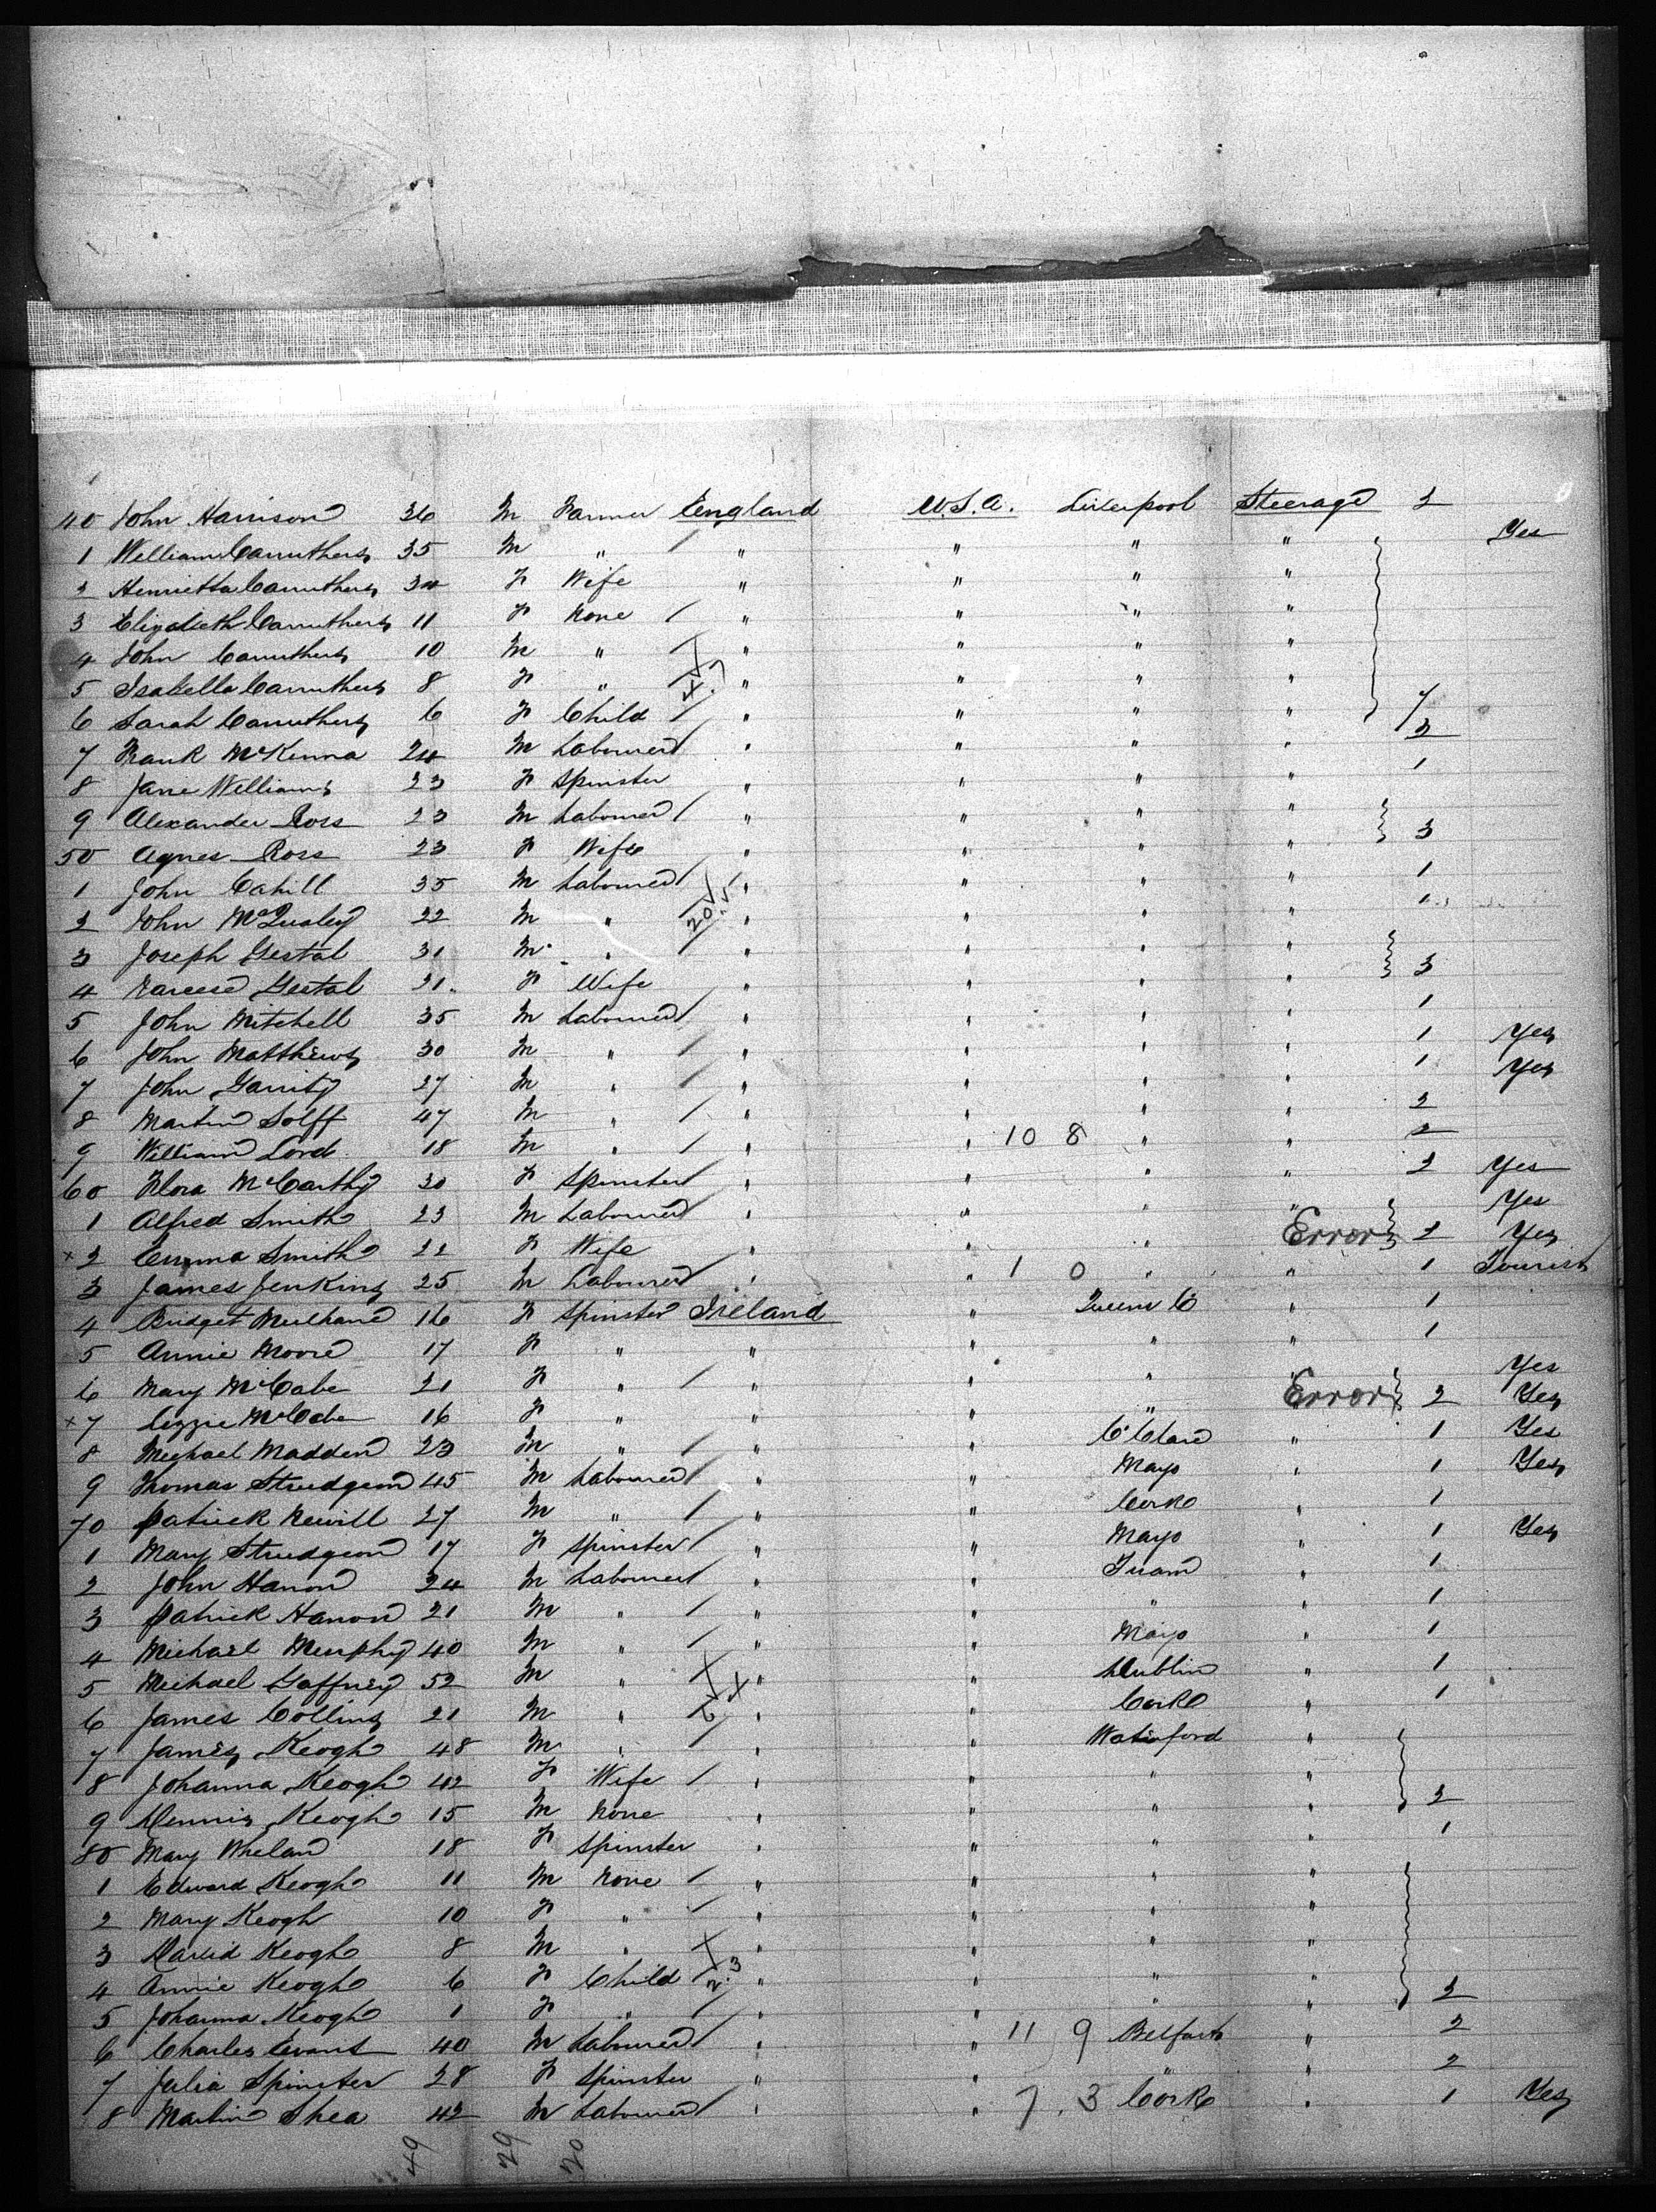 40 John Harrison 36 M Farmer England U.S.A. Liverpool Steerage 2
1 William Carruthers 35 M " / " " " " Yes
2 Henrietta Carruthers 34 F Wife " " " "
3 Elizabeth Carruthers 11 F None / " " " "
4 John Carruthers 10 M " / " " " "
5 Isabella Carruthers 8 F " " " " "
6 Sarah Carruthers 6 F Child / " " " "
7 Frank McKenna 24 M Labourer / " " " " 2
8 Jane Williams 23 F Spinster " " " " 1
9 Alexander Ross 23 M Labourer / " " " "
50 Agnes Ross 23 F Wife " " " " 3
1 John Cahill 35 M Labourer / " " " " 1
2 John 22 M " " " " " 1
3 Joseph Gestal 31 M " / " " " "
4 Gestal 21 F Wife " " " " 3
5 John Mitchell 35 M Labourer / " " " " 1
6 John Matthews 30 M " / " " " " 1 Yes
7 John Garrity 27 M " / " " " " 1 Yes
8 Martin Solff 47 M " / " " " " 2
9 William Lord 18 M " / " " 10 8 " " 2
60 Flora McCarthy 30 F Spinster / " " " " 2 Yes
1 Alfred Smith 23 M Labourer / " " " " Yes
x 2 Emma Smith 22 F Wife " " " Error 2 Yes
3 James Jenkins 25 M Labourer / " " 1 0 " " 1 Tourist
4 Bridget Mulhane 16 F Spinster Ireland " Queens Co " 1
5 Annie Moore 17 F " " " " " 1
6 Mary McCabe 21 F " / " " " " Yes
x 7 Lizzie McCabe 16 F " " " " Error 2 Yes
8 Michael Madden 23 M " / " " Co Clare " 1 Yes
9 Thomas Strudgeon 45 M Labourer / " " Mayo " 1 Yes
70 Patrick Newill 27 M " / " " Cork " 1
1 Mary Strudgeon 17 F Spinster / " " Mayo " 1 Yes
2 John Hanon 24 M Labourer " " Tuam " 1
3 Patrick Hanon 21 M " / " " " " 1
4 Michael Murphy 40 M " / " " Mayo " 1
5 Michael Gaffney 52 M " " " Dublin " 1
6 James Collins 21 M " " " Cork " 1
7 James Keogh 48 M " / " " Waterford "
8 Johanna Keogh 42 F Wife / " " " "
9 Dennis Keogh 15 M None " " " " 2
80 Mary Whelan 18 F Spinster " " " " 1
1 Edward Keogh 11 M None / " " " "
2 Mary Keogh 10 F " / " " " "
3 David Keogh 8 M " " " " "
4 Annie Keogh 6 F Child " " " "
5 Johanna Keogh 1 F " / " " " " 2
6 Charles Evans 40 M Labourer / " " 11 9 Belfast " 2
7 Julia Spinster 28 F Spinster " " " " 2
8 Martin Shea 42 M Labourer / " " 7 . 3 Cork " 1 Yes
49 29 20